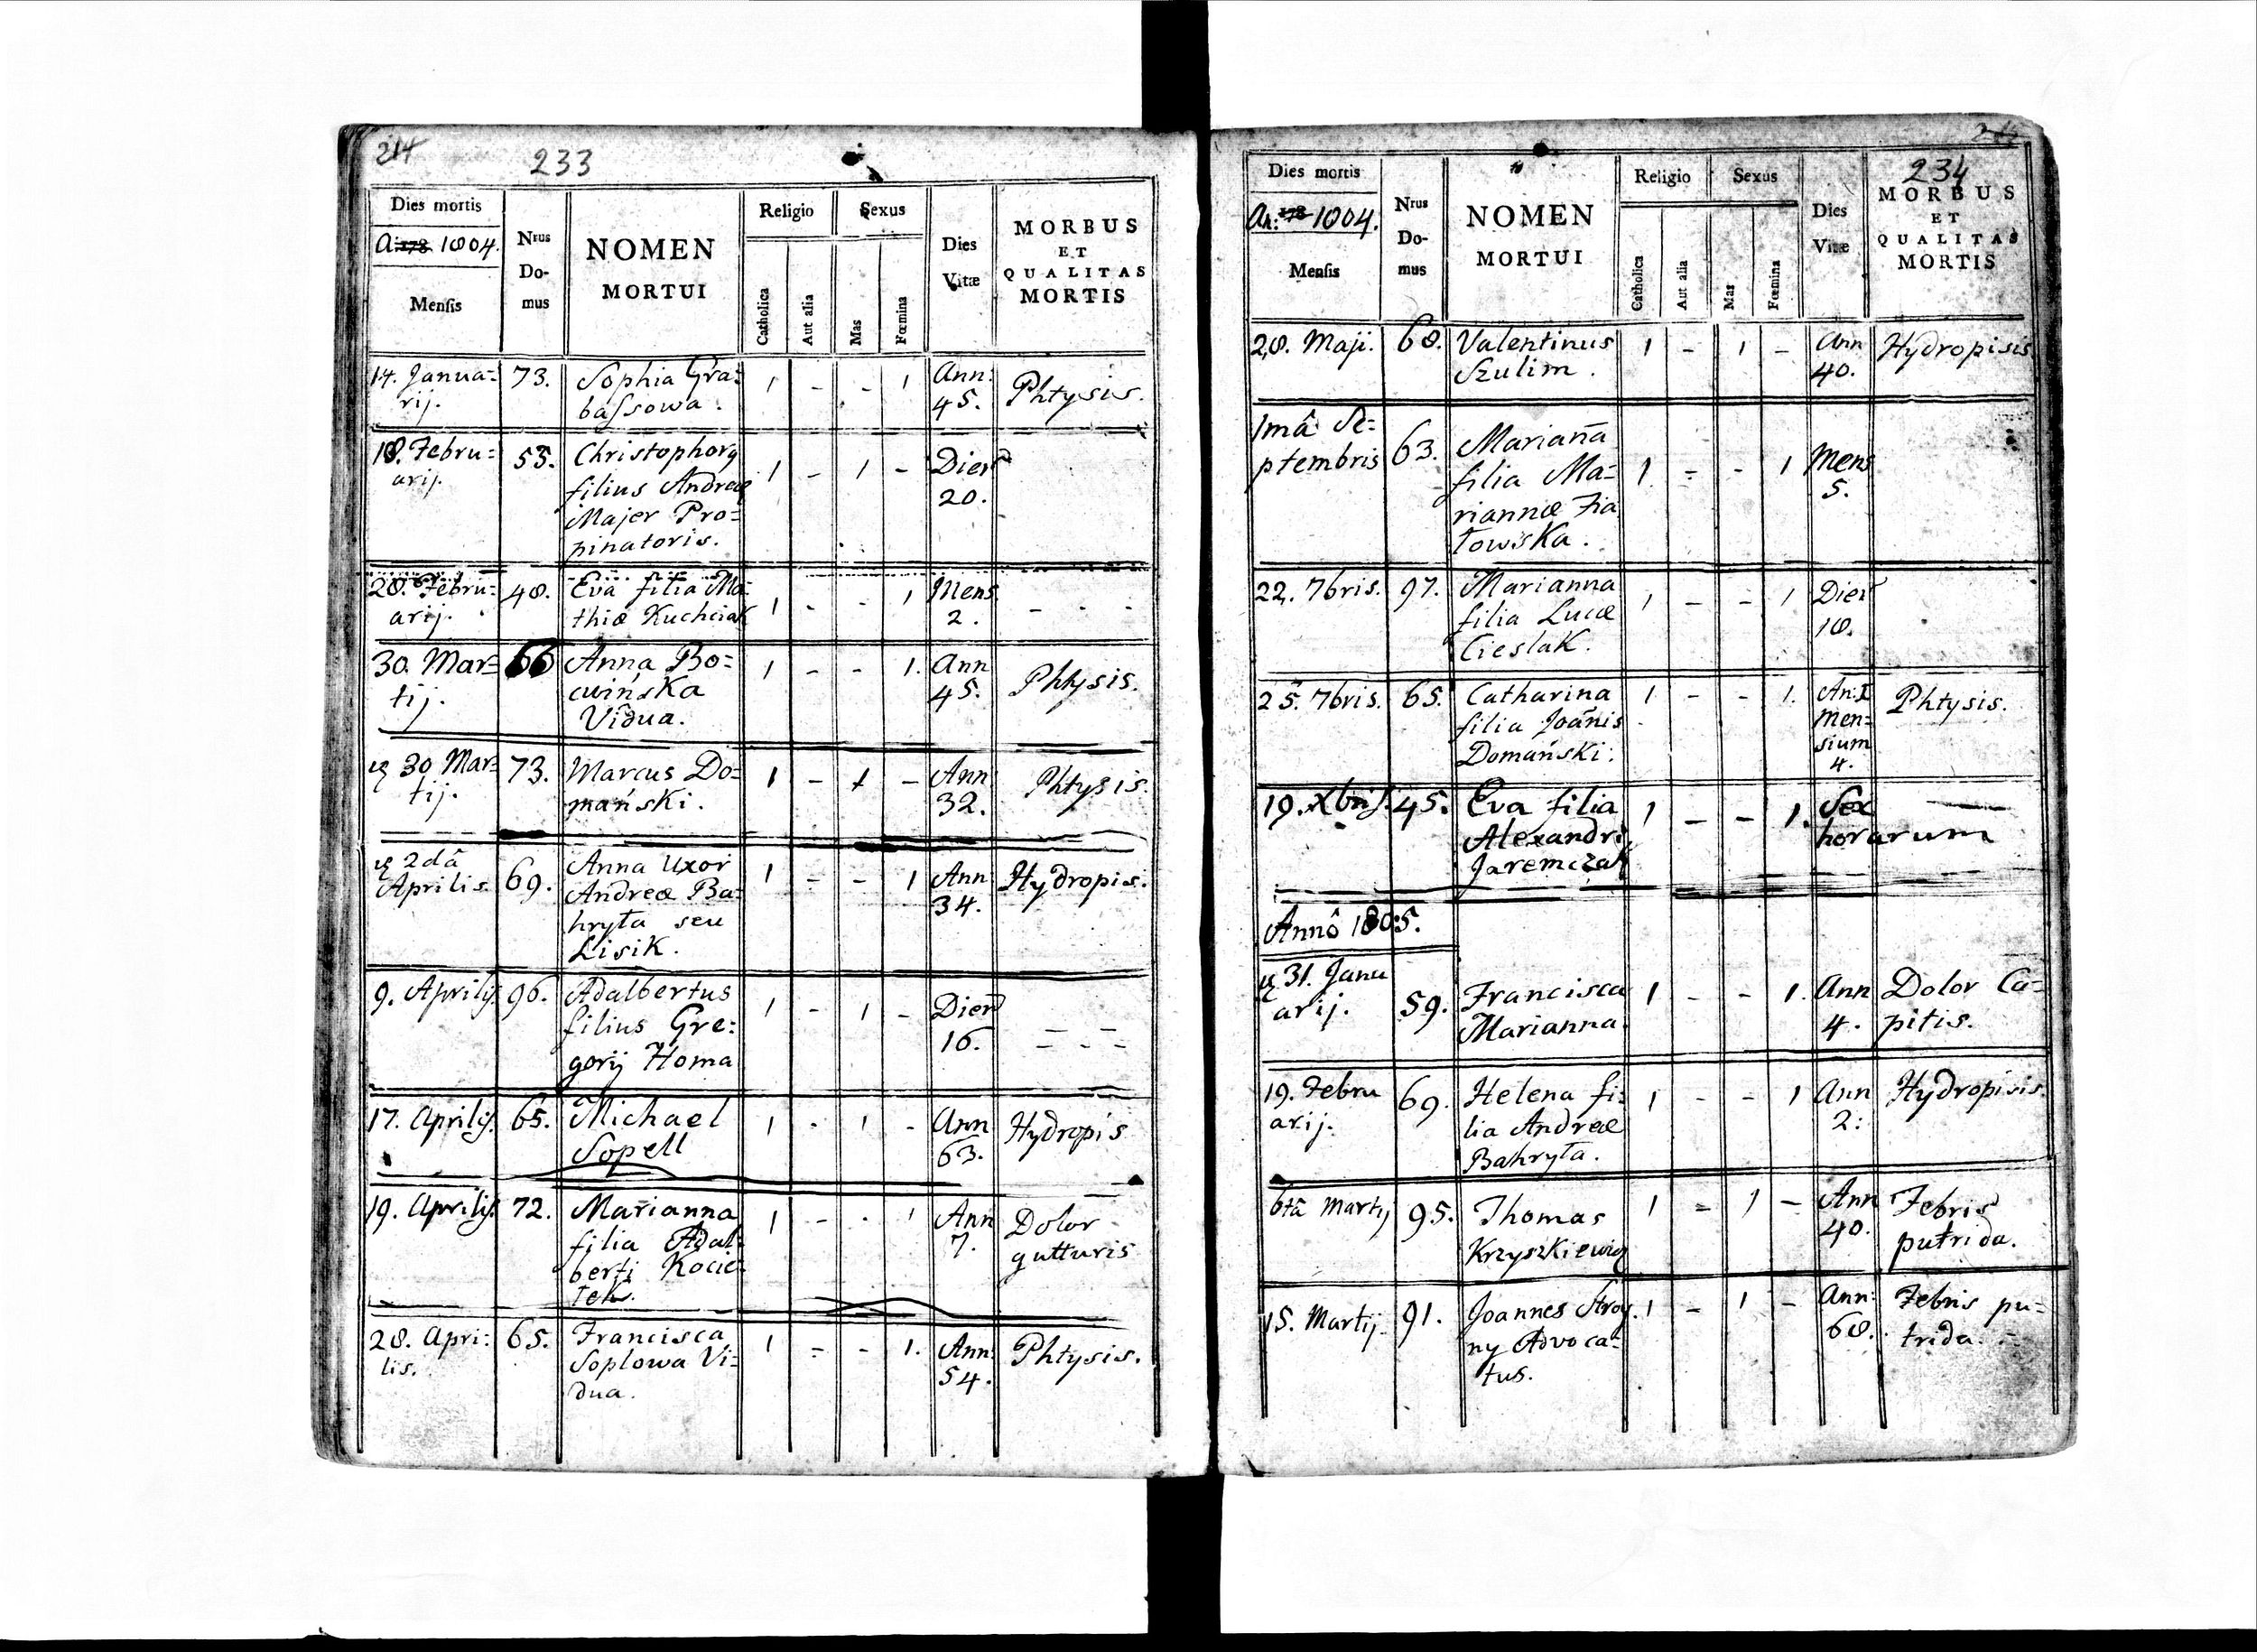 214
233
Dies mortis
A: 178 1804.
Mensis
Nrus
Do-
mus
NOMEN
MORTUI
Religio
Catholica
Aut alia
Sexus
Mas
Fœmina
Dies
Vitæ
MORBUS
ET
QUALITAS
MORTIS
14. Janua=
rij.
73.
Sophia Gra=
bassowa.
1 - - 1
Ann:
45.
Phtysis.
18. Febru=
arij.
53.
Christophorq
filius Andreæ
Majer Pro=
pinatoris.
1 - 1 -
Dier
20.
28. Febru=
arij.
48.
Eva filia Ma=
thiæ Kuchciak
1 - - 1
Mens
2.
- - -
30. Mar=
tij.
66
Anna Bo=
cwińska
Vidua.
1 - - 1.
Ann
45.
Phtysis.
30 Mar=
tij.
73.
Marcus Do=
mański.
1 - 1 -
Ann
32.
Phtysis.
2dâ
Aprilis.
69.
Anna Uxor
Andreæ Ba=
hryta seu
Lisik.
1 - - 1
Ann
34.
Hydropis.
9. Aprilis
96.
Adalbertus
filius Gre=
gorij Homa
1 - 1 -
Dier
16.
- - -
17. Aprilis.
65.
Michael
Sopell
1 - 1 -
Ann
63.
Hydropis
19. Aprilis.
72.
Marianna
filia Adal=
berti Kocie=
łek.
1 - - 1
Ann
7.
Dolor
gutturis
28. Apri=
lis.
65.
Francisca
Soplowa Vi=
dua.
1 - - 1.
Ann:
54.
Phtysis.
234
Dies mortis
An: 178 1804.
Mensis
Nrus
Do-
mus
NOMEN
MORTUI
Religio
Catholica
Aut alia
Sexus
Mas
Fœmina
Dies
Vitæ
MORBUS
ET
QUALITAS
MORTIS
28. Maji.
68.
Valentinus
Szulim.
1 - 1 -
Ann
40.
Hydropisis.
1mâ Se=
ptembris
63.
Mariana
filia Ma=
riannæ Zia
łowska.
1 - - 1
Mens
5.
22. 7bris.
97.
Marianna
filia Lucæ
Cieslak.
1 - - 1
Dier
18.
25. 7bris.
65.
Catharina
filia Joānis
Domański.
1 - - 1.
An: I
Men=
sium
4.
Phtysis.
19. Xbris.
45.
Eva filia
Alexandri
Jaremczak
1 - - 1.
Sex
horarum
Annô 1805.
31. Janu
arij.
59.
Francisca
Marianna.
1 - - 1.
Ann
4.
Dolor Ca=
pitis.
19. Febru
arij.
69.
Helena fi=
lia Andreæ
Bahryta.
1 - - 1
Ann
2:
Hydropisis.
6tâ Martij
95.
Thomas
Krzyszkiewicz
1 - 1 -
Ann
40.
Febris
putrida.
15. Martij.
91.
Joannes Stroy
ny Advoca=
tus.
1 - 1 -
Ann:
68.
Febris pu=
trida.